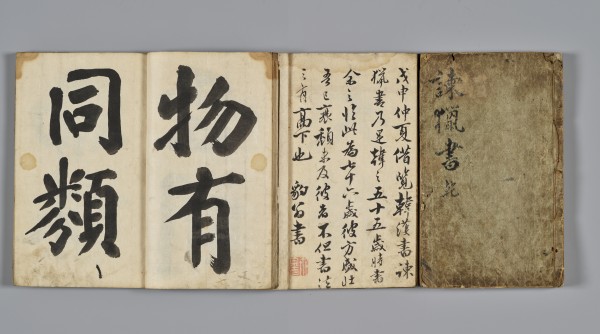 諫獵書
戊申仲夏借覽韓濩書諫
獵書乃是韓之五十五歲時書
余之臨此爲七十六歲彼方盛壯
吾已衰頹及彼者不但書法
之有高下也 豹翁書
物有
同類